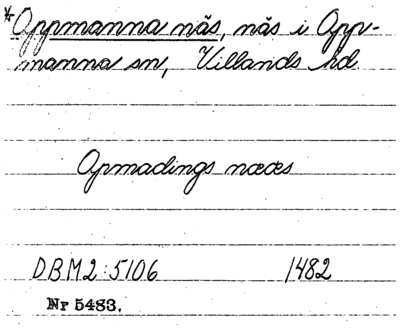 * Oppmanna näs, näs i Opp-
manna sn, Villands hd
Opmadings næes
DBM2:5106 1482
Nr 5483.